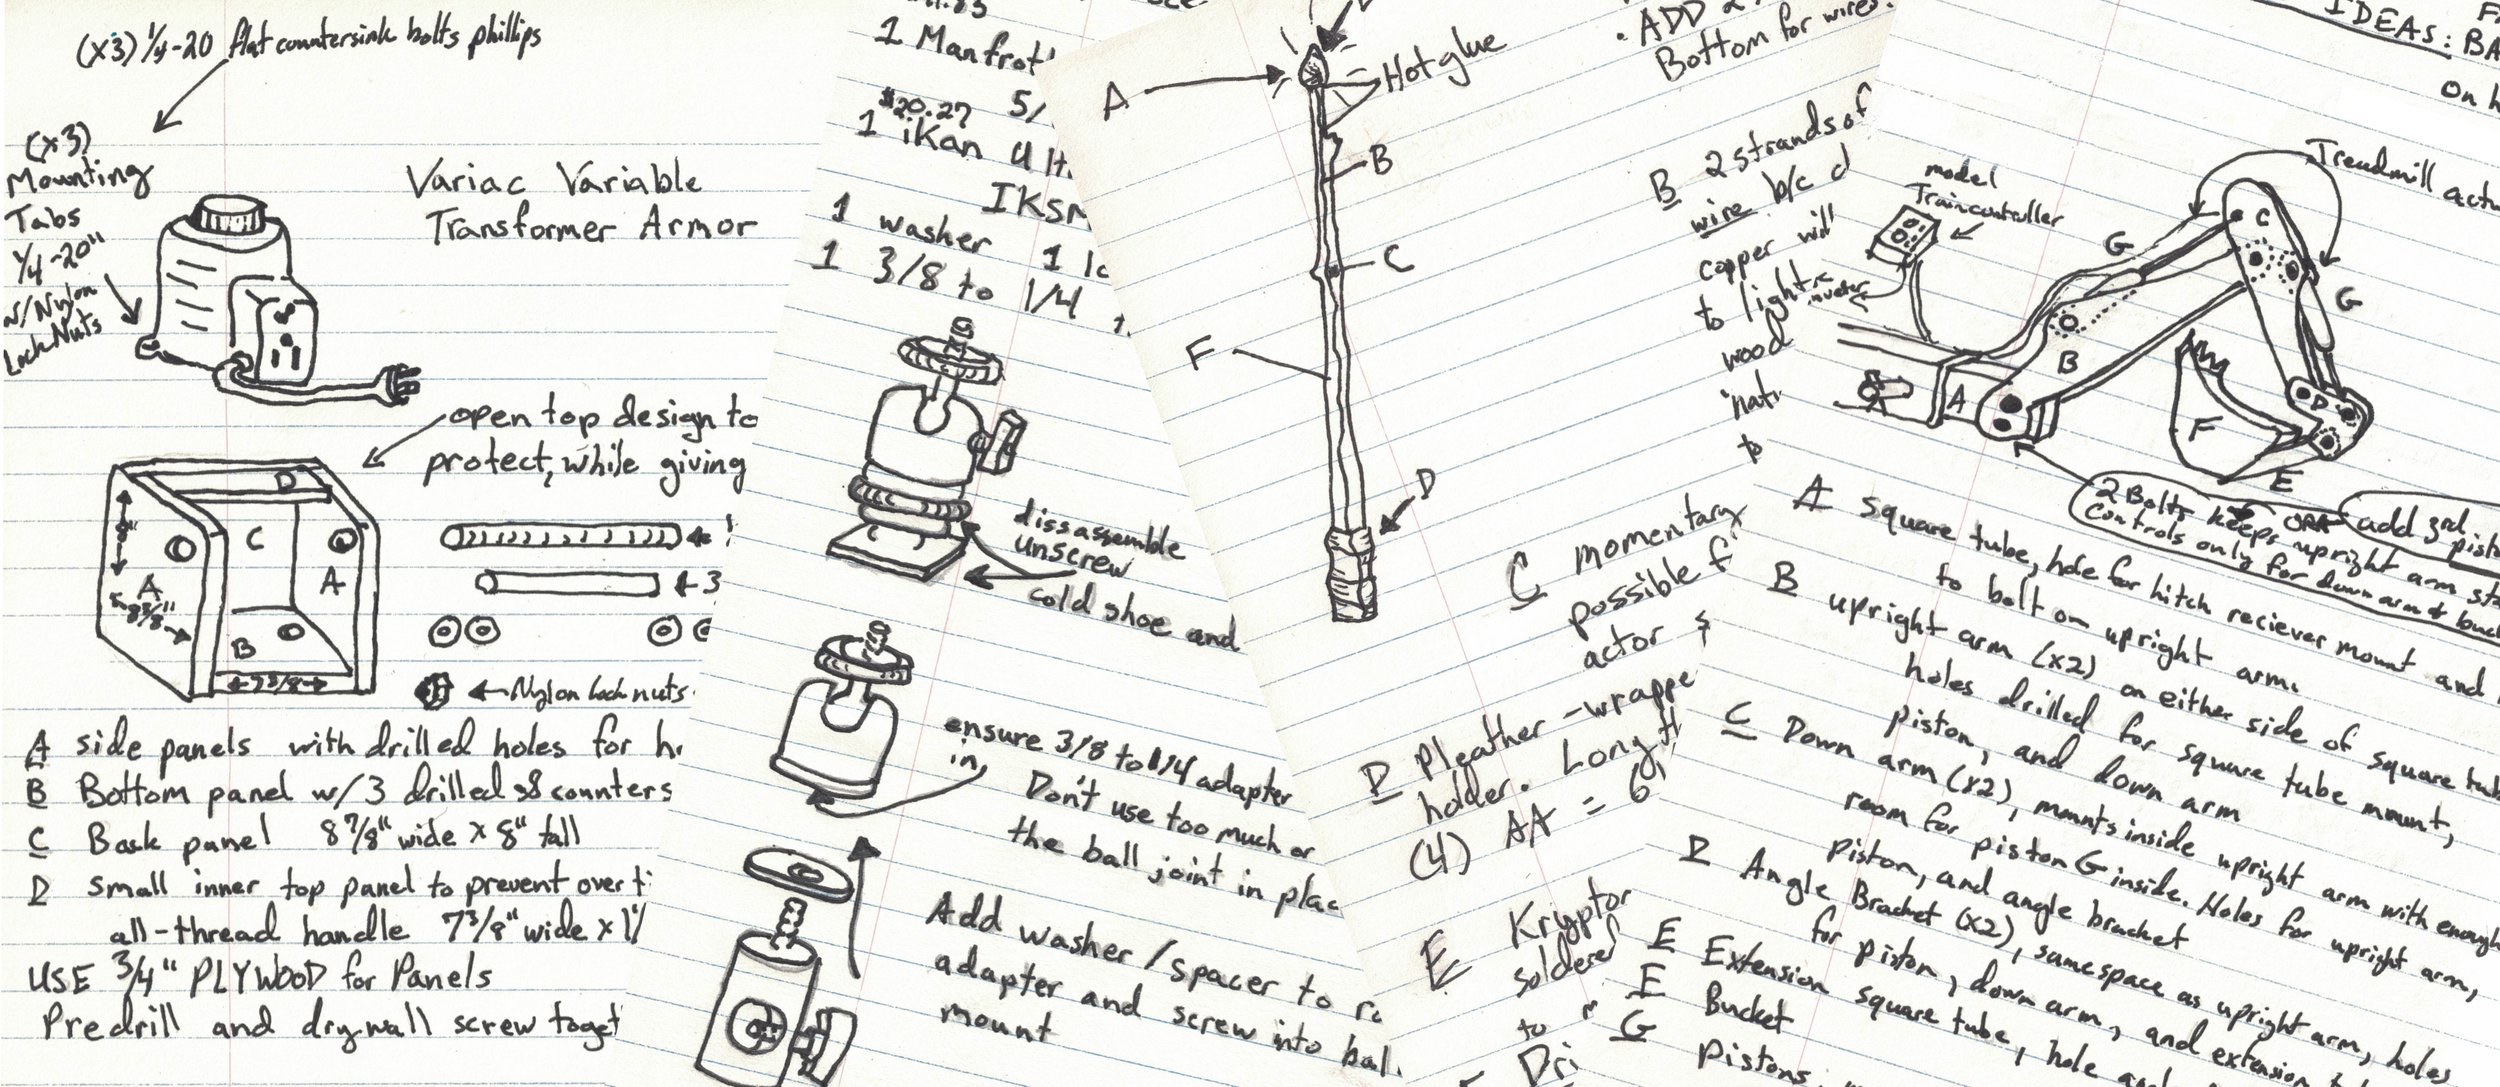 (x3) 1/4-20 flat countersink bolts phillips
(x3)
Mounting
Tabs
1/4-20"
w/Nylon
Lock Nuts
Variac Variable
Transformer Armor
open top design to
protect, while giving
D
C
8"
A
8 7/8"
A
B
7 3/8"
Nylon lock nuts
A side panels with drilled holes for
B Bottom panel w/3 drilled & counters
C Back panel 8 7/8" wide x 8" tall
D small inner top panel to prevent over
all-thread handle 7 3/8" wide x 1
USE 3/4" PLYWOOD for Panels
Predrill and drywall screw toget
1 Manfrot
$20.27 5/
1 iKan Ult
IKSM
1 washer 1 lo
1 3/8 to 1/4
dissasemble
unscrew
cold shoe and
ensure 3/8 to 1/4 adapter
in,
Don't use too much or
the ball joint in plac
Add washer/spacer to
adapter and screw into bal
mount
A
Hot glue
B
C
F
D
. ADD 2
Bottom for wires.
B 2 strands of
wire b/c
copper will
to light
wood
to
C momentary
possible f
actor &
D Pleather-wrappe
holder. Long
(4) AA = 6
E Krypton
soldered
to
Dri
IDEAS: BA
on h
Treadmill actu
model
Train controller
inverter
C
G
G
B
A
D
F
E
2 Bolts keeps upright arm sta
controls only for down arm & buck
OR
add 3rd
pist
A square tube, hole for hitch reciever mount and
to bolt on upright arm.
B upright arm (x2) on either side of square tub
holes drilled for square tube mount,
piston, and down arm
C Down arm (x2), mounts inside upright arm with enough
room for piston G inside. Holes for upright arm,
piston, and angle bracket
D Angle Bracket (x2), same space as upright arm, holes
for piston, down arm, and extension
E Extension square tube, hole and
F Bucket
G Pistons,